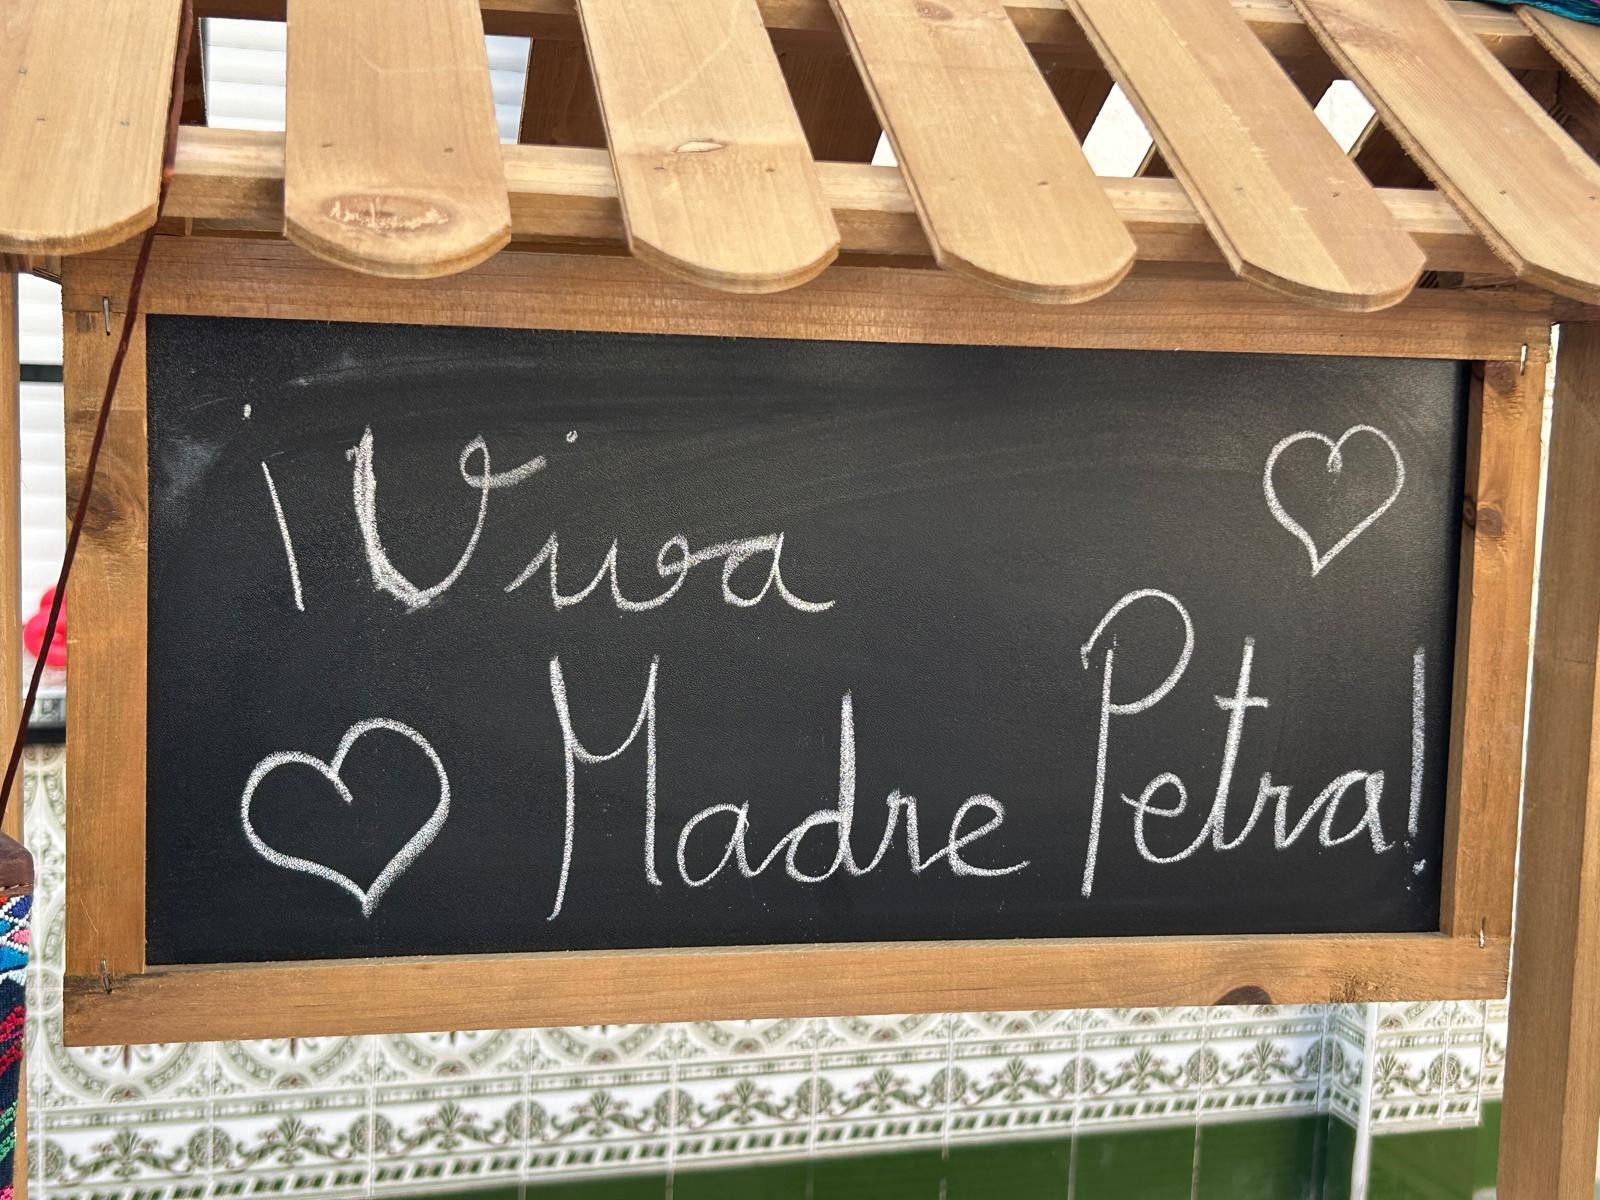 ¡Viva
Madre Petra!